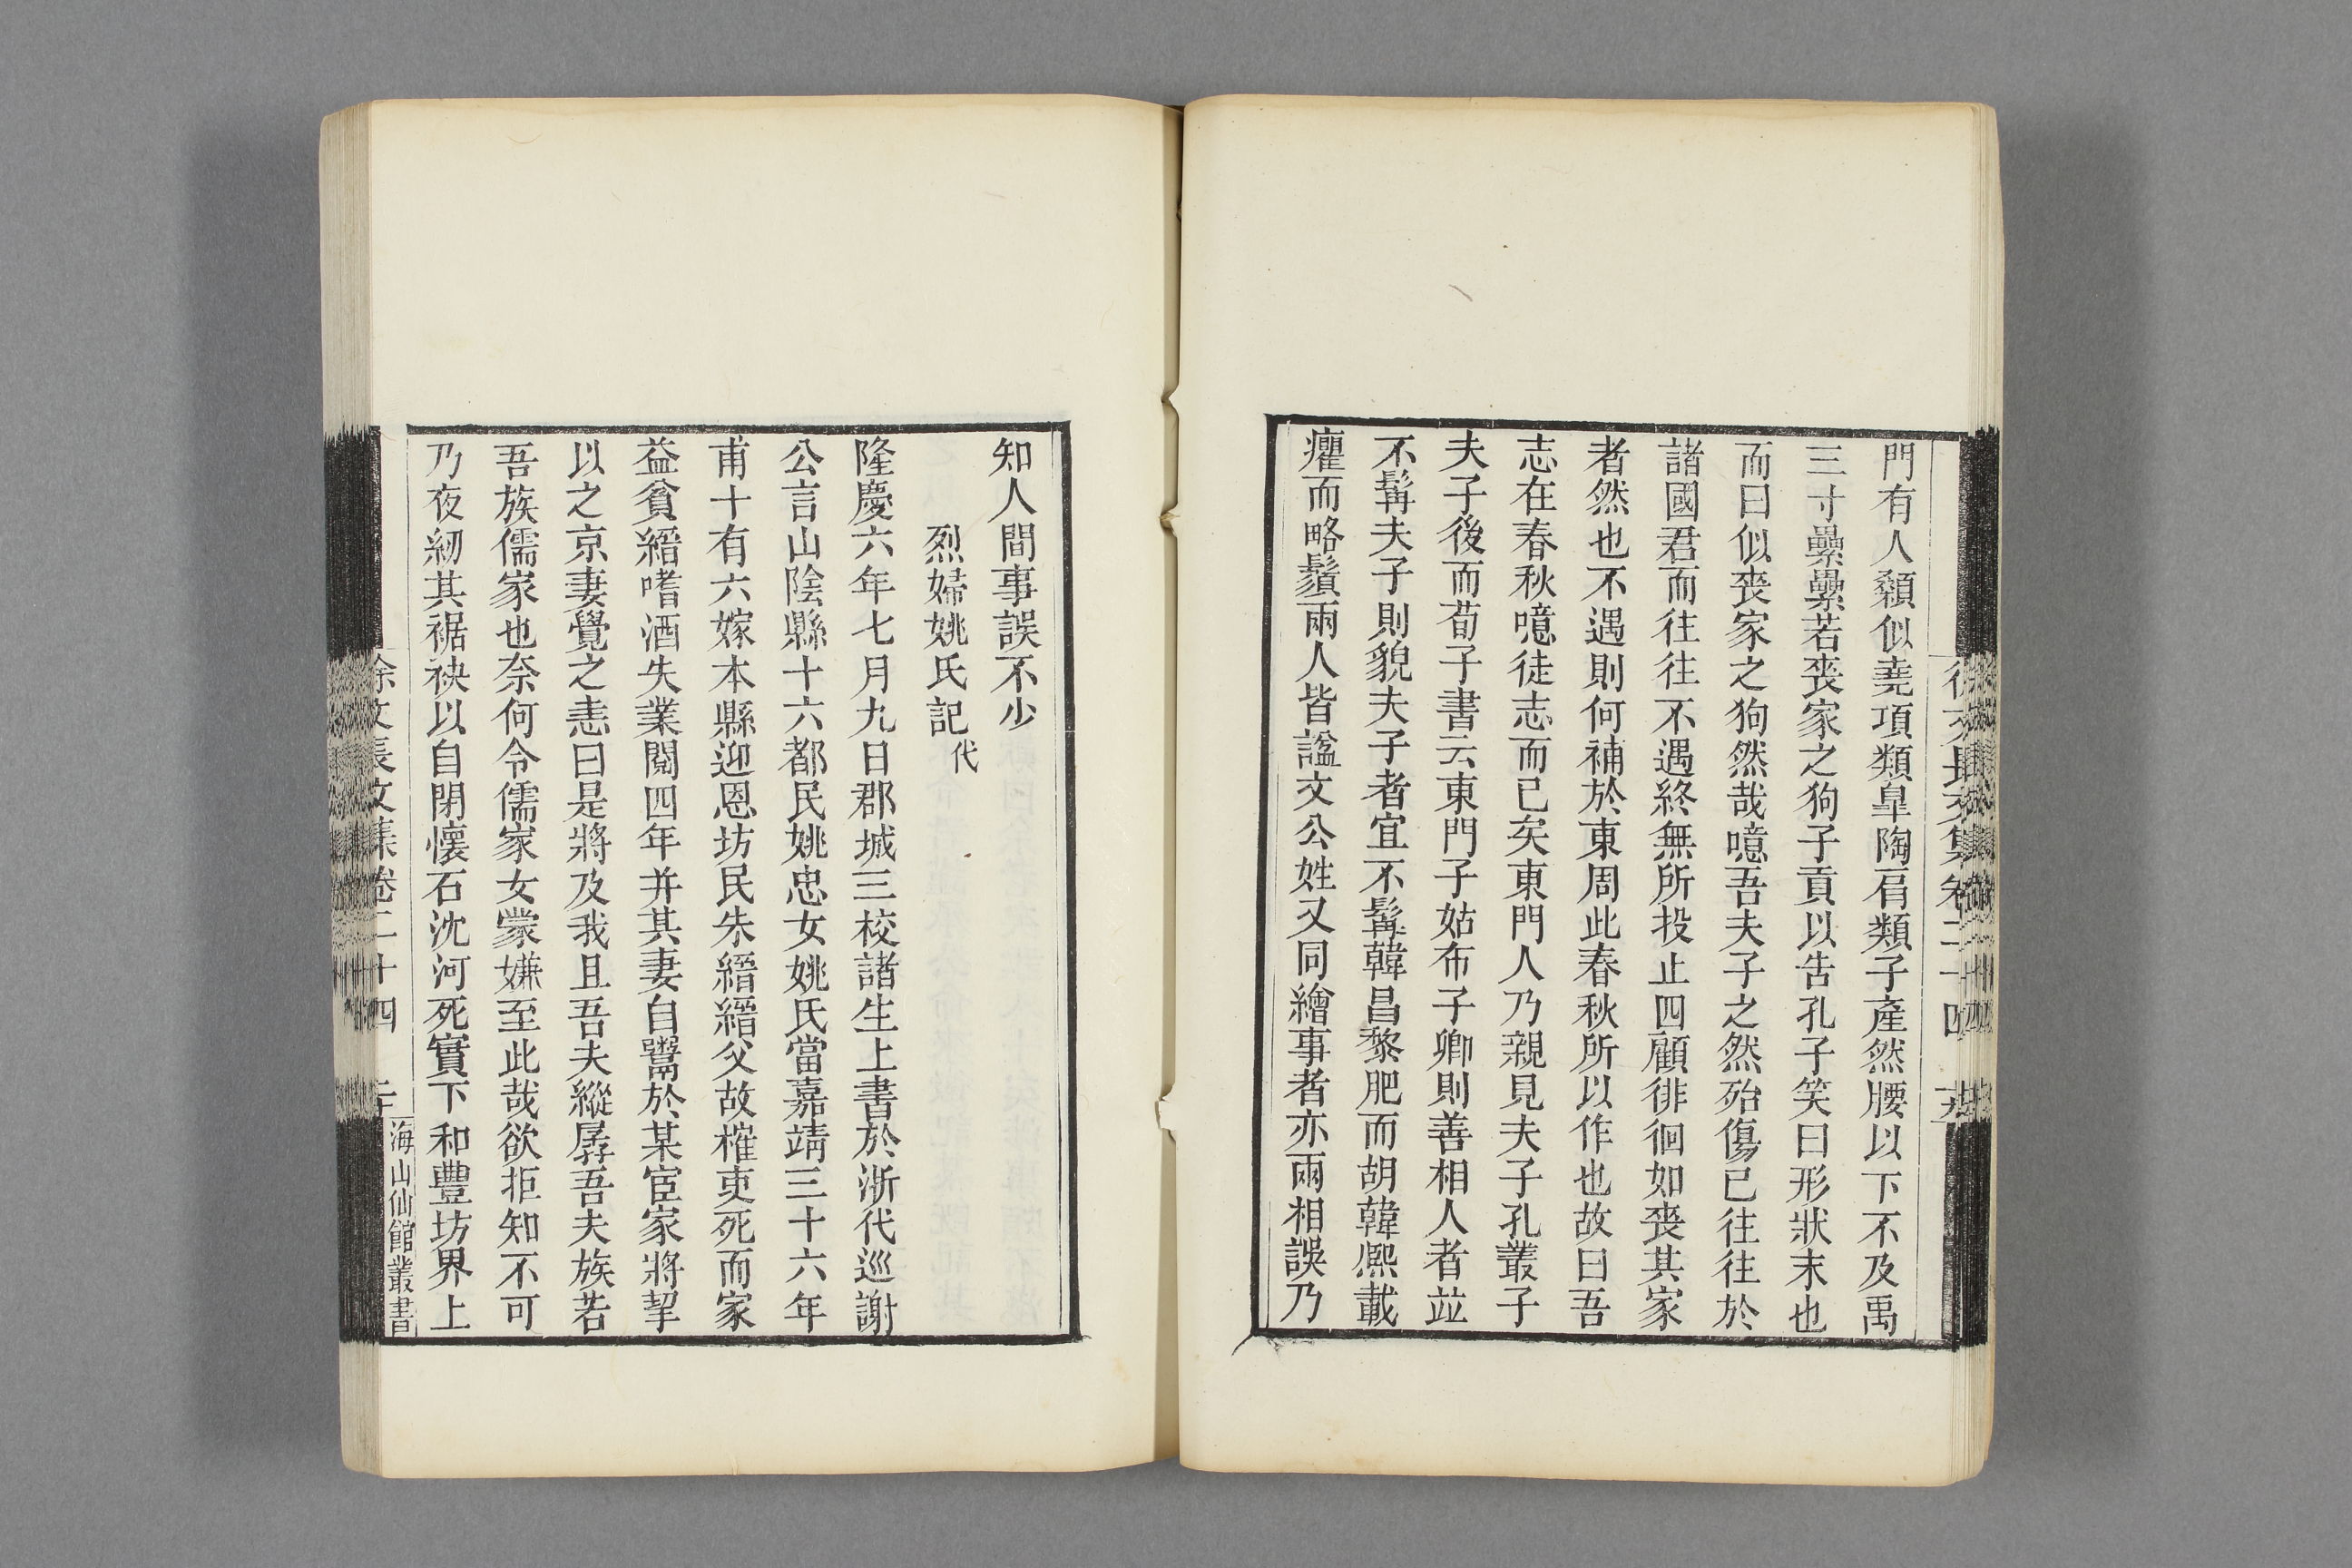 門有人顙似堯項類皐陶肩類子產然腰以下不及禹
三寸纍纍若喪家之狗子貢以吿孔子笑曰形狀末也
而曰似喪家之狗然哉噫吾夫子之然殆傷已往往於
諸國君而往往不遇終無所投止四顧徘徊如喪其家
者然也不遇則何補於東周此春秋所以作也故曰吾
志在春秋噫徒志而已矣東門人乃親見夫子孔叢子
夫子後而荀子書云東門子姑布子卿則善相人者竝
不髯夫子則貌夫子者宜不髯韓昌黎肥而胡韓熙載
癯而略鬚兩人皆謚文公姓又同繪事者亦兩相誤乃
知人間事誤不少
烈婦姚氏記代
隆慶六年七月九日郡城三校諸生上書於浙代巡謝
公言山陰縣十六都民姚忠女姚氏當嘉靖三十六年
甫十有六嫁本縣迎恩坊民朱縉縉父故榷吏死而家
益貧縉嗜酒失業閱四年幷其妻自鬻於某宦家將挈
以之京妻覺之恚曰是將及我且吾夫縱孱吾夫族若
吾族儒家也奈何令儒家女蒙嫌至此哉欲拒知不可
乃夜紉其裾袂以自閉懷石沈河死實下和豐坊界上
徐文長文集卷二十四
海山仙館叢書